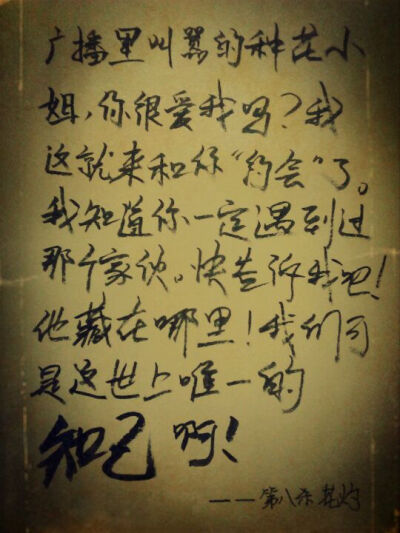 广播里叫嚣的种花小
姐,你很爱我吗?我
这就来和你“约会”了。
我知道你一定遇到过
那个家伙。快告诉我吧!
他藏在哪里!我们可
是这世上唯一的
知己啊!
——第八杀花灼